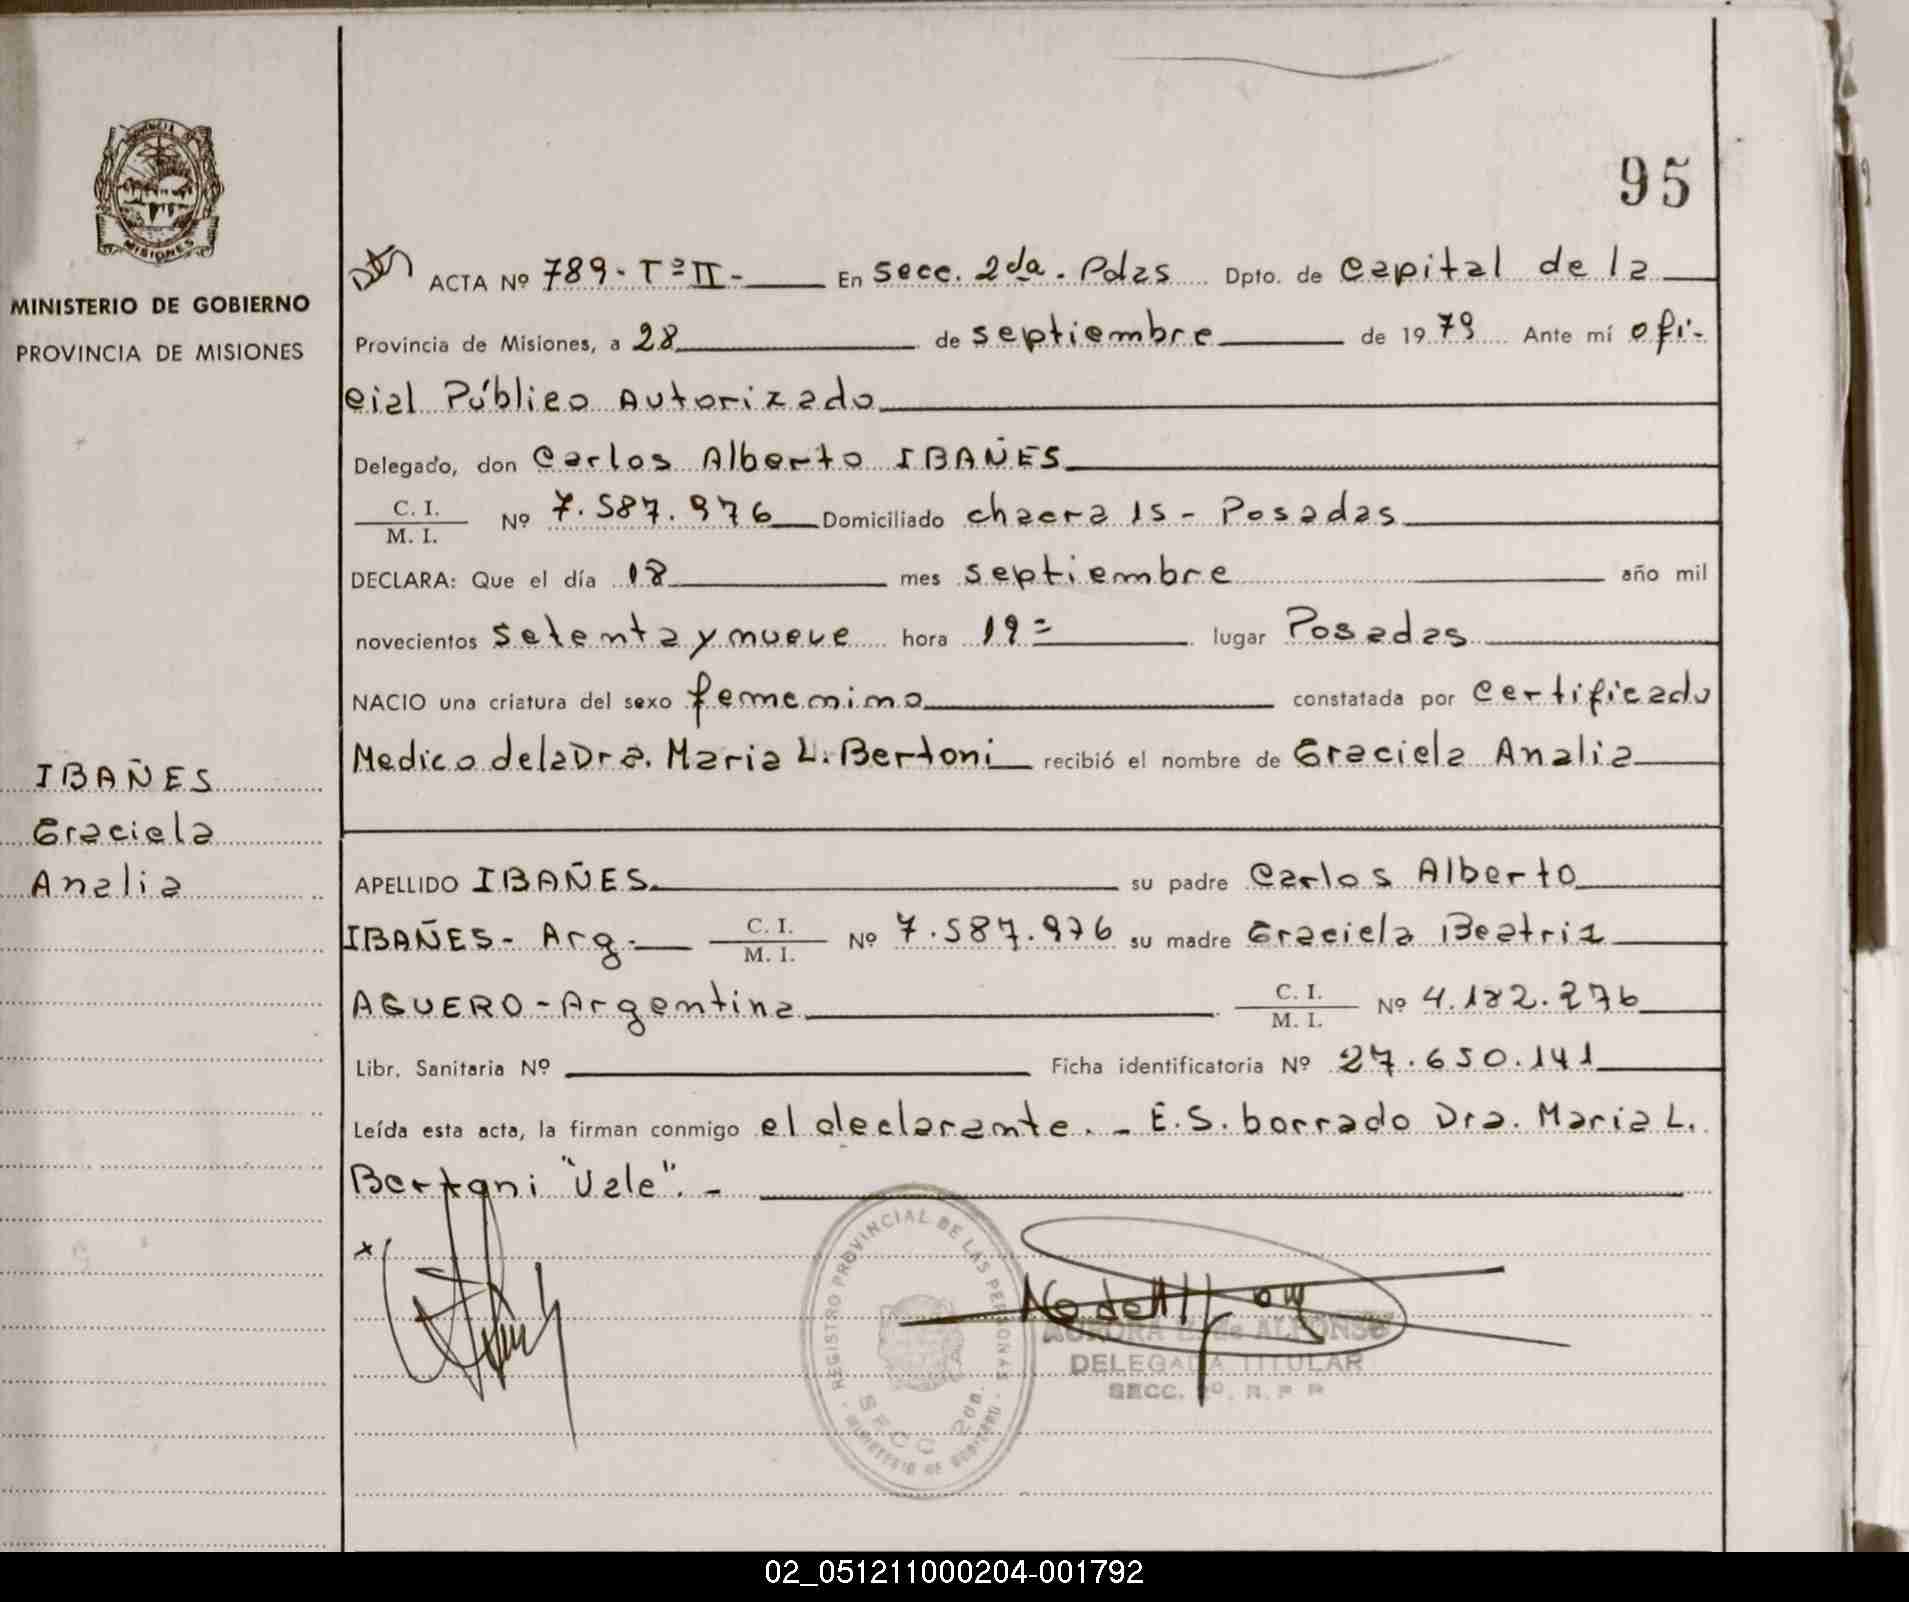 95
PROVINCIA DE
MISIONES
MINISTERIO DE GOBIERNO
PROVINCIA DE MISIONES
IBAÑES
Graciela
Analia
ACTA Nº 789 - Tº II - En Secc. 2da. Pdas Dpto. de Capital de la
Provincia de Misiones, a 28 de septiembre de 1979 Ante mí ofi-
cial Público Autorizado
Delegado, don Carlos Alberto IBAÑES
C. I.
M. I. Nº 7.587.976 Domiciliado chacra 15 - Posadas
DECLARA: Que el día 18 mes septiembre año mil
novecientos setenta y nueve hora 19= lugar Posadas
NACIO una criatura del sexo femenino constatada por Certificado
Medico de la Dra. Maria L. Bertoni recibió el nombre de Graciela Analia
APELLIDO IBAÑES su padre Carlos Alberto
IBAÑES - Arg. C. I.
M. I. Nº 7.587.976 su madre Graciela Beatriz
AGUERO - Argentina C. I.
M. I. Nº 4.182.276
Libr. Sanitaria Nº Ficha identificatoria Nº 27.650.141
Leída esta acta, la firman conmigo el declarante. - E.S. borrado Dra. Maria L.
Bertoni "Vale". -
x
REGISTRO PROVINCIAL DE LAS PERSONAS
SECC 2da.
MINISTERIO DE GOBIERNO
AURORA N. de ALFONSO
DELEGADA TITULAR
SECC. 2º. R. P. P.
02_051211000204-001792